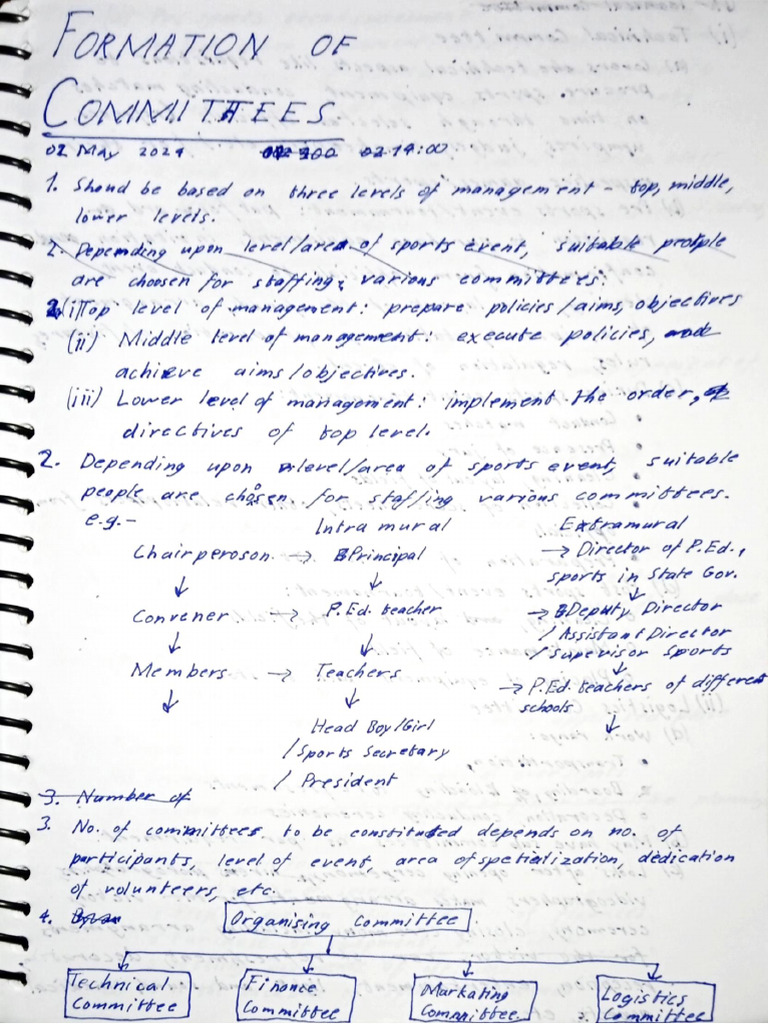 FORMATION OF
COMMITTEES
02 May 2021 14:00
1. Should be based on three levels of management - top, middle,
lower levels.
2. Depending upon level/area of sports event, suitable people
are choosen for staffing various committees.
2.(i) Top level of management: prepare policies/aims, objectives
(ii) Middle level of management: execute policies, and
achieve aims/objectives.
(iii) Lower level of management: implement the order,
directives of top level.
2. Depending upon level/area of sports event, suitable
people are chosen for staffing various committees.
e.g.- Intra mural Extramural
Chairperoson → Principal → Director of P.Ed.,
sports in State Gov.
↓ ↓ ↓
Convener → P.Ed. teacher → Deputy Director
/ Assistant Director
/ Supervisor Sports
↓ ↓ ↓
Members → Teachers → P.Ed. teachers of different
schools
↓ ↓ ↓
Head Boy/Girl
/ Sports Secretary
/ President
3. Number of
3. No. of committees to be constituted depends on no. of
participants, level of event, area of spetialization, dedication
of volunteers, etc.
4. Organising Committee
Technical Finance Markating Logistics
Committee Committee Committee Committee